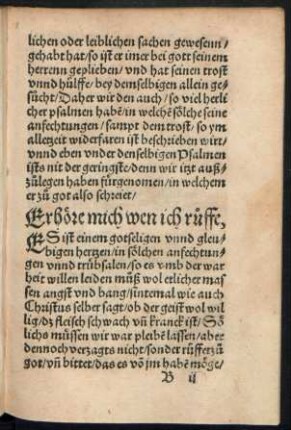 lichen oder leiblichen sachen gewesenn/
gehabt hat/ so ist er imer bei gott seinem
herrenn geplieben/ vnd hat seinen trost
vnnd hülffe/ bey demselbigen allein ge-
sücht/ Daher wir den auch/ so viel herli
cher psalmen habē/ in welchē sölche seine
anfechtungen/ sampt dem trost/ so ym
allerzeit widerfaren ist beschrieben wirt/
vnnd eben vnder denselbigen Psalmen
ists nit der geringste/ denn wir itzt auß-
zülegen haben fürgenomen/ in welchem
er zü got also schreiet/
Erhöre mich wen ich rüffe,
ES ist einem gotseligen vnnd gleu-
bigen hertzen/ in sölchen anfechtun-
gen vnnd trübsalen/ so es vmb der war
heit willen leiden müß wol etlicher mas
sen angst vnd bang/ sintemal wie auch
Christus selber sagt/ ob der geist wol wil
lig/ dz fleisch schwach vñ kranck ist/ Sö
lichs müssen wir war pleibē lassen/ aber
dennoch verzagts nicht/ sonder rüfft er zü
got/ vñ bittet/ das es vō jm habē möge/
B ij